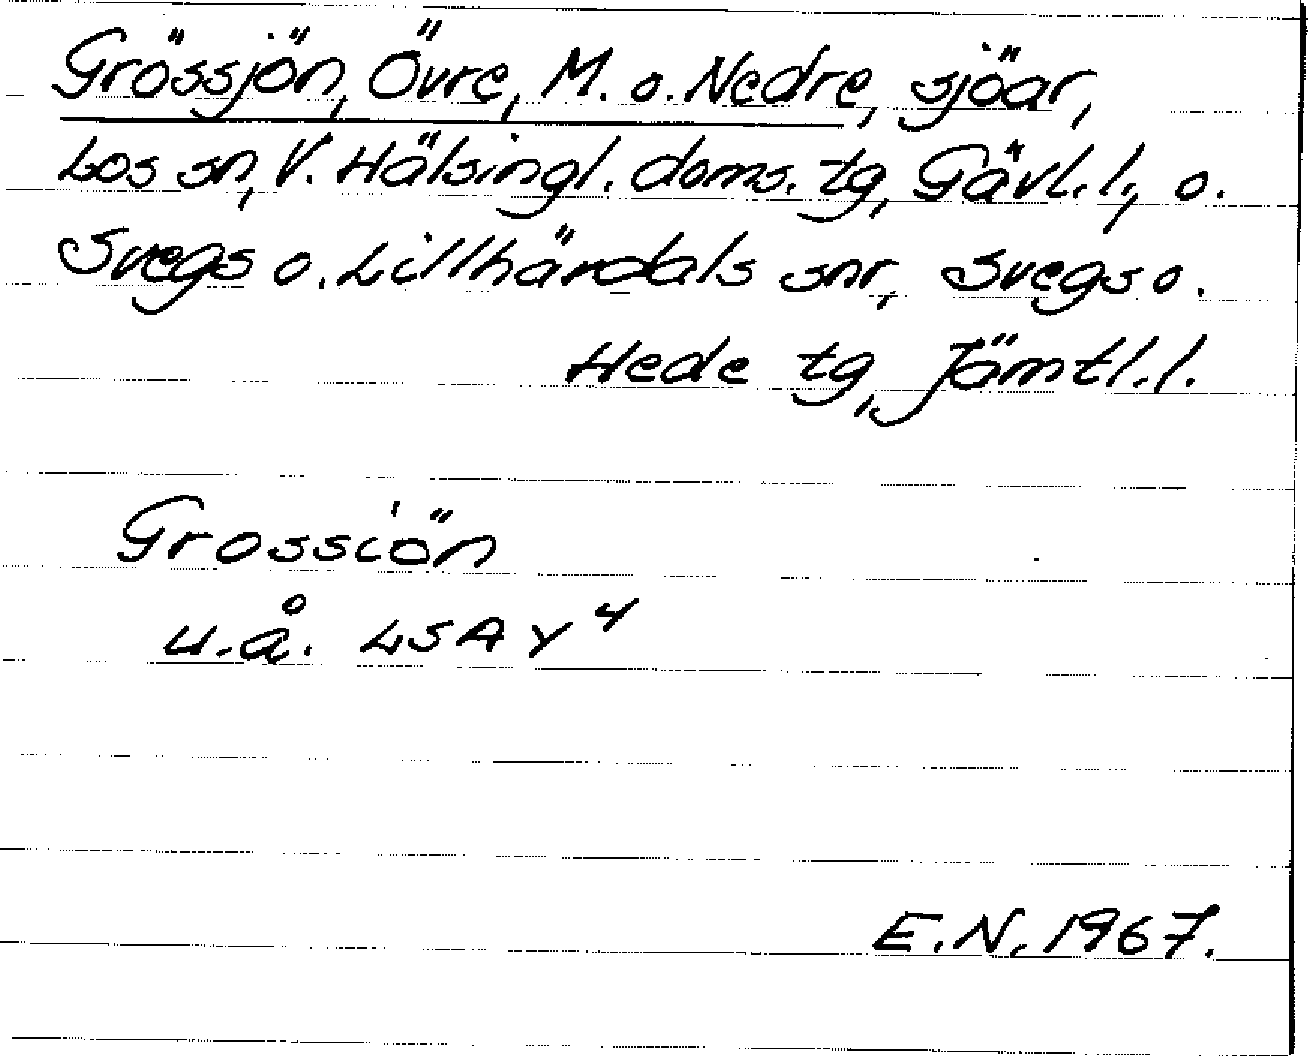 Grössjön, Övre, M. o. Nedre, sjöar,
Los sn, V. Hälsingl. doms. tg, Gävl.l., o.
Svegs o. Lillhärdals snr, Svegs o.
Hede tg, Jämtl.l.
Grossiön
u.å. LSA Y 4
E.N. 1967.